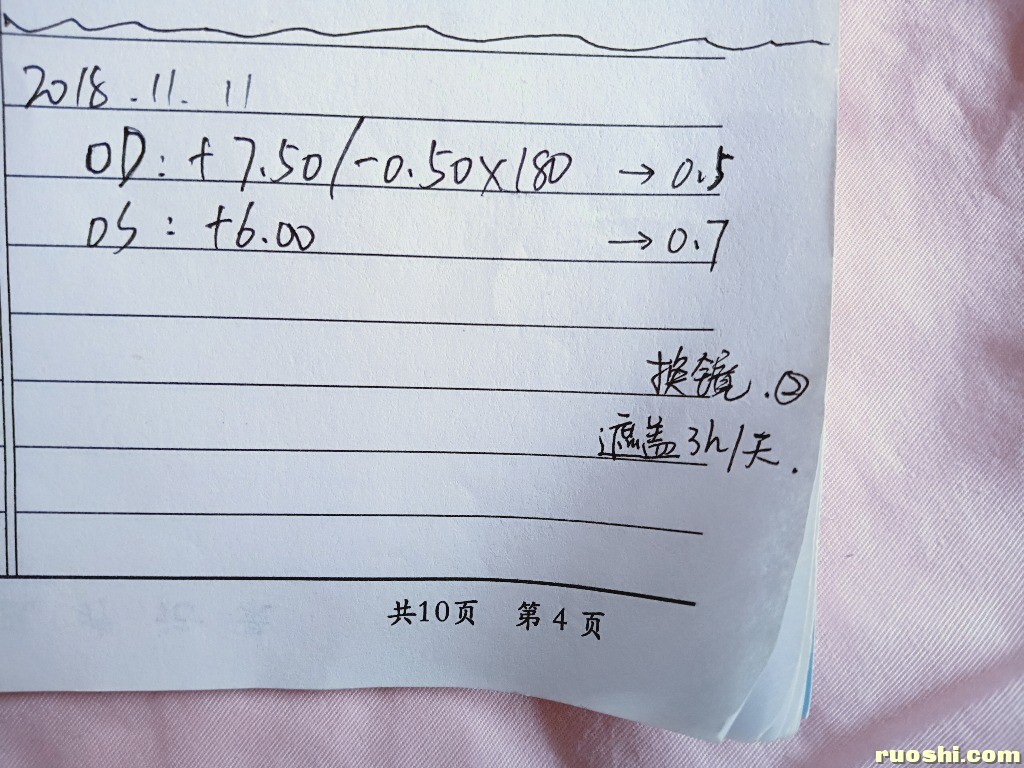 2018.11.11
OD: +7.50/-0.50×180 → 0.5
OS: +6.00 → 0.7
换镜.②
遮盖3h/天.
共10页 第4页
ruoshi.com